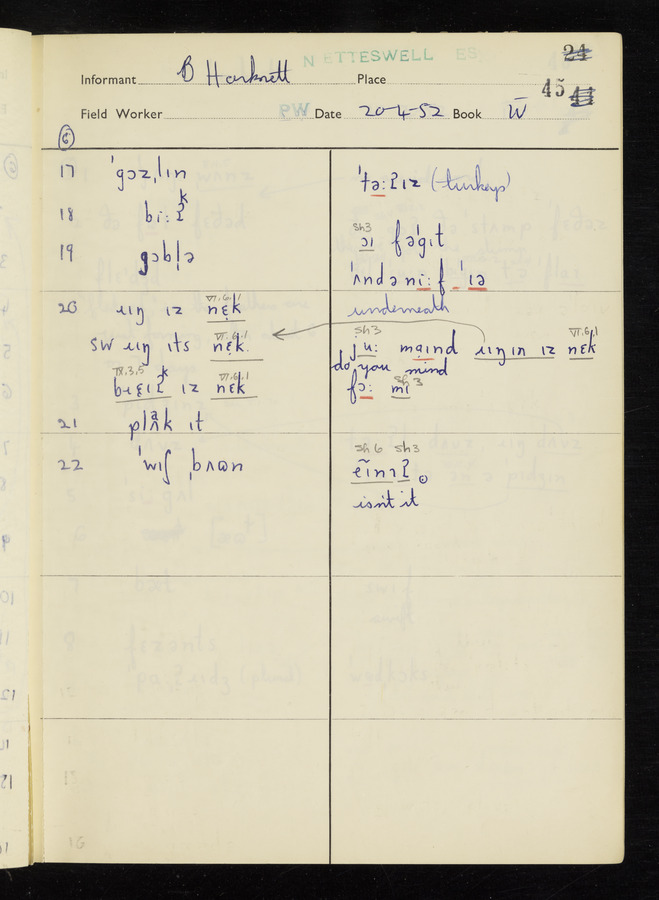 NETTESWELL ES
24
Informant B Harknett Place
45 44
Field Worker PW Date 20-4-52 Book IV
6
17 ˈɡɔzˌlɪn
ˈtəːʔɪz (turkeys)
18 biːʔ k
19 ɡɔblə
sh3
ɔɪ fəˈɡɪt
ˈʌndəniːf ˈɪə
underneath
20 ɪz nɛk VI.6.1
sw ɪts nɛk VI.6.1
sh3 VI.6.1
juː maɪnd ɪn ɪz nɛk
do you mind
IX.3,5 k VI.6.1
ɪz nɛk
sh3
fɔː mɪ
21 plʌk ɪt
22 ˈwɪʃ ˌbʌɷn
sh6 sh3
ẽĩnɪʔ
isn't it